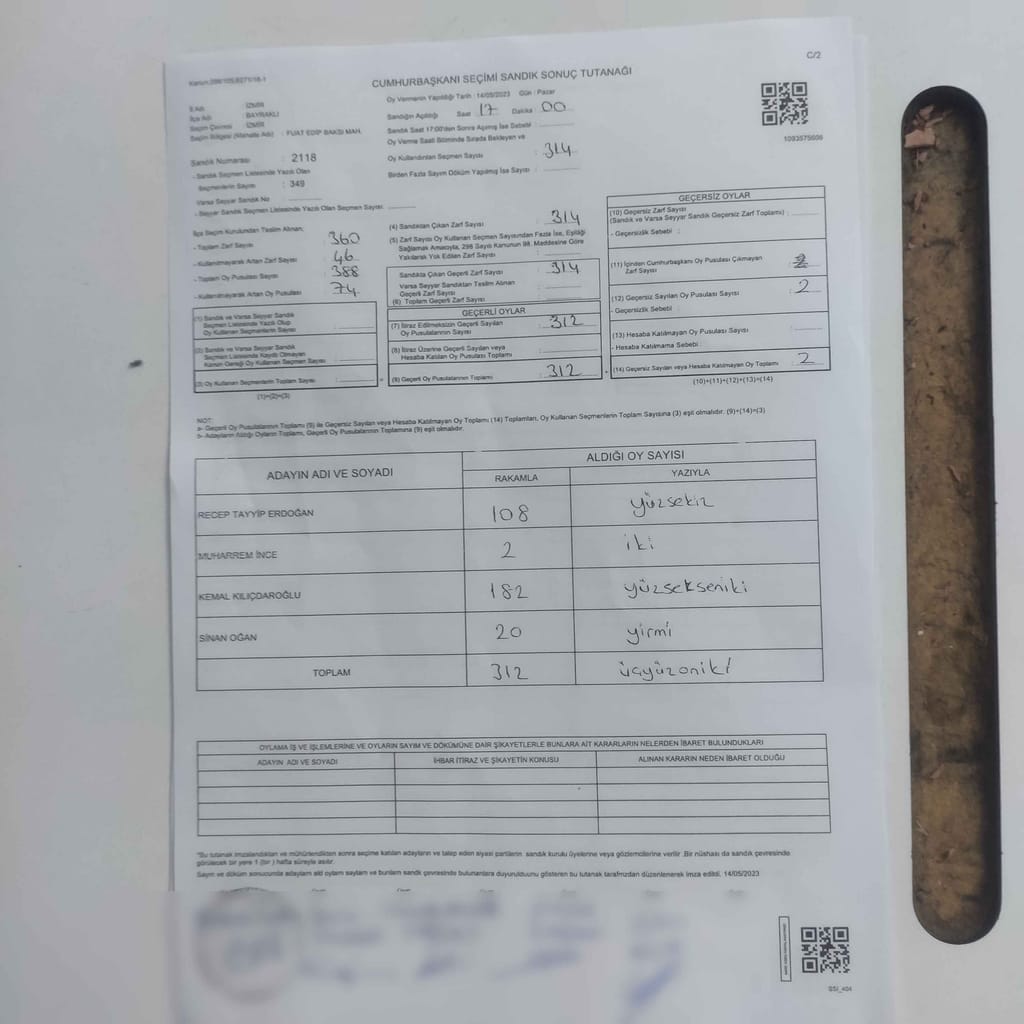 C/2
CUMHURBAŞKANI SEÇİMİ SANDIK SONUÇ TUTANAĞI
Oy Vermenin Yapıldığı Tarih : 14/05/2023 Gün : Pazar
İl Adı : İZMİR
İlçe Adı : BAYRAKLI
Seçim Çevresi : İZMİR
Seçim Bölgesi (Mahalle Adı) : FUAT EDİP BAKSI MAH.
Sandık Numarası : 2118
- Sandık Seçmen Listesinde Yazılı Olan
Seçmenlerin Sayısı : 349
Varsa Seyyar Sandık No :
- Seyyar Sandık Seçmen Listesinde Yazılı Olan Seçmen Sayısı:
Sandığın Açıldığı Saat 17 Dakika 00
Sandık Saat 17:00'den Sonra Açılmış İse Sebebi :
Oy Verme Saati Bitiminde Sırada Bekleyen ve
Oy Kullandırılan Seçmen Sayısı : 314
Birden Fazla Sayım Döküm Yapılmış İse Sayısı :
1093575006
İlçe Seçim Kurulundan Teslim Alınan;
- Toplam Zarf Sayısı : 360
- Kullanılmayarak Artan Zarf Sayısı : 46
- Toplam Oy Pusulası Sayısı : 388
- Kullanılmayarak Artan Oy Pusulası : 74
(1) Sandık ve Varsa Seyyar Sandık
Seçmen Listesinde Yazılı Olup
Oy Kullanan Seçmenlerin Sayısı :
(2) Sandık ve Varsa Seyyar Sandık
Seçmen Listesinde Kayıtlı Olmayan
Kanun Gereği Oy Kullanan Seçmen Sayısı :
(3) Oy Kullanan Seçmenlerin Toplam Sayısı :
(1)+(2)=(3)
(4) Sandıktan Çıkan Zarf Sayısı : 314
(5) Zarf Sayısı Oy Kullanan Seçmen Sayısından Fazla İse, Eşitliği
Sağlamak Amacıyla, 298 Sayılı Kanunun 98. Maddesine Göre
Yakılarak Yok Edilen Zarf Sayısı :
Sandıkta Çıkan Geçerli Zarf Sayısı : 314
Varsa Seyyar Sandıktan Teslim Alınan
Geçerli Zarf Sayısı :
(6) Toplam Geçerli Zarf Sayısı :
GEÇERLİ OYLAR
(7) İtiraz Edilmeksizin Geçerli Sayılan
Oy Pusulalarının Sayısı : 312
(8) İtiraz Üzerine Geçerli Sayılan veya
Hesaba Katılan Oy Pusulası Toplamı :
(9) Geçerli Oy Pusulalarının Toplamı : 312
GEÇERSİZ OYLAR
(10) Geçersiz Zarf Sayısı
(Sandık ve Varsa Seyyar Sandık Geçersiz Zarf Toplamı) :
- Geçersizlik Sebebi :
(11) İçinden Cumhurbaşkanı Oy Pusulası Çıkmayan
Zarf Sayısı
(12) Geçersiz Sayılan Oy Pusulası Sayısı : 2
- Geçersizlik Sebebi :
(13) Hesaba Katılmayan Oy Pusulası Sayısı :
- Hesaba Katılmama Sebebi :
(14) Geçersiz Sayılan veya Hesaba Katılmayan Oy Toplamı : 2
(10)+(11)+(12)+(13)=(14)
NOT:
a- Geçerli Oy Pusulalarının Toplamı (9) ile Geçersiz Sayılan veya Hesaba Katılmayan Oy Toplamı (14) Toplamları, Oy Kullanan Seçmenlerin Toplam Sayısına (3) eşit olmalıdır. (9)+(14)=(3)
b- Adayların Aldığı Oyların Toplamı, Geçerli Oy Pusulalarının Toplamına (9) eşit olmalıdır.
ADAYIN ADI VE SOYADI
ALDIĞI OY SAYISI
RAKAMLA YAZIYLA
RECEP TAYYİP ERDOĞAN 108 yüzsekiz
MUHARREM İNCE 2 iki
KEMAL KILIÇDAROĞLU 182 yüzsekseniki
SİNAN OĞAN 20 yirmi
TOPLAM 312 üçyüzoniki
OYLAMA İŞ VE İŞLEMLERİNE VE OYLARIN SAYIM VE DÖKÜMÜNE DAİR ŞİKAYETLERLE BUNLARA AİT KARARLARIN NELERDEN İBARET BULUNDUKLARI
ADAYIN ADI VE SOYADI İHBAR İTİRAZ VE ŞİKAYETİN KONUSU ALINAN KARARIN NEDEN İBARET OLDUĞU
"Bu tutanak imzalandıktan ve mühürlendikten sonra seçime katılan adayların ve talep eden siyasi partilerin sandık kurulu üyelerine veya gözlemcilerine verilir. Bir nüshası da sandık çevresinde
görülecek bir yere 1 (bir ) hafta süreyle asılır.
Sayım ve döküm sonucunda adayların aldı oyların sayıları ve bunların sandık çevresinde bulunanlara duyurulduunu gösteren bu tutanak tarafımızdan düzenlenerek imza edildi. 14/05/2023
SSI_404